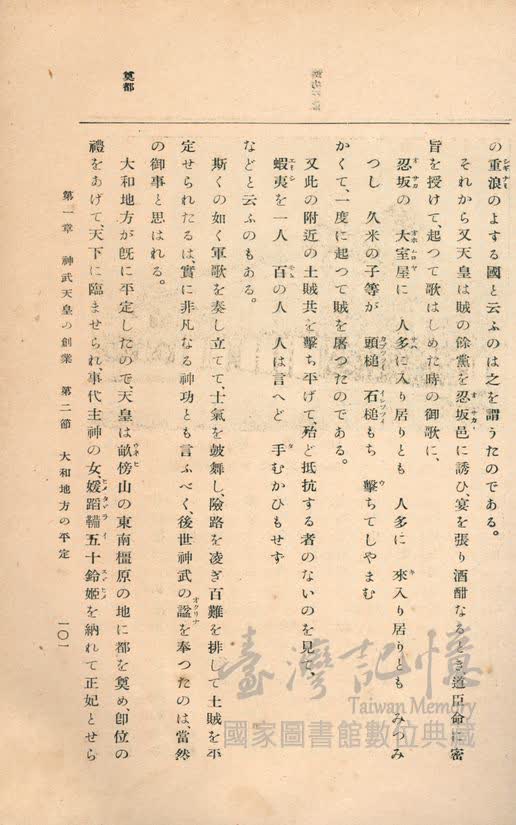 奠都
の重浪のよする國と云ふのは之を謂うたのである。
それから又天皇は賊の餘黨を忍坂邑に誘ひ、宴を張り酒酣なるとき道臣命に密
旨を授けて、起つて歌はしめた時の御歌に、
忍坂の 大室屋に 人多に入り居りとも 人多に 來入り居りとも みつみ
つし 久米の子等が 頭槌 石槌もち 擊ちてしやまむ
かくて、一度に起つて賊を屠つたのである。
又此の附近の土賊共を擊ち平げて、殆ど抵抗する者のないのを見て、
蝦夷を一人 百の人 人は言へど 手むかひもせず
などと云ふのもある。
斯くの如く軍歌を奏し立てて、士氣を皷舞し、險路を凌ぎ百難を排して土賊を平
定せられたるは、實に非凡なる神功とも言ふべく、後世神武の諡を奉つたのは、當然
の御事と思はれる。
大和地方が旣に平定したので、天皇は畝傍山の東南橿原の地に都を奠め、卽位の
禮をあげて、天下に臨ませられ、事代主神の女、媛蹈鞴五十鈴姬を納れて正妃とせら
第一章 神武天皇の創業 第二節 大和地方の平定
一〇一
臺灣記憶
Taiwan Memory
國家圖書館數位典藏